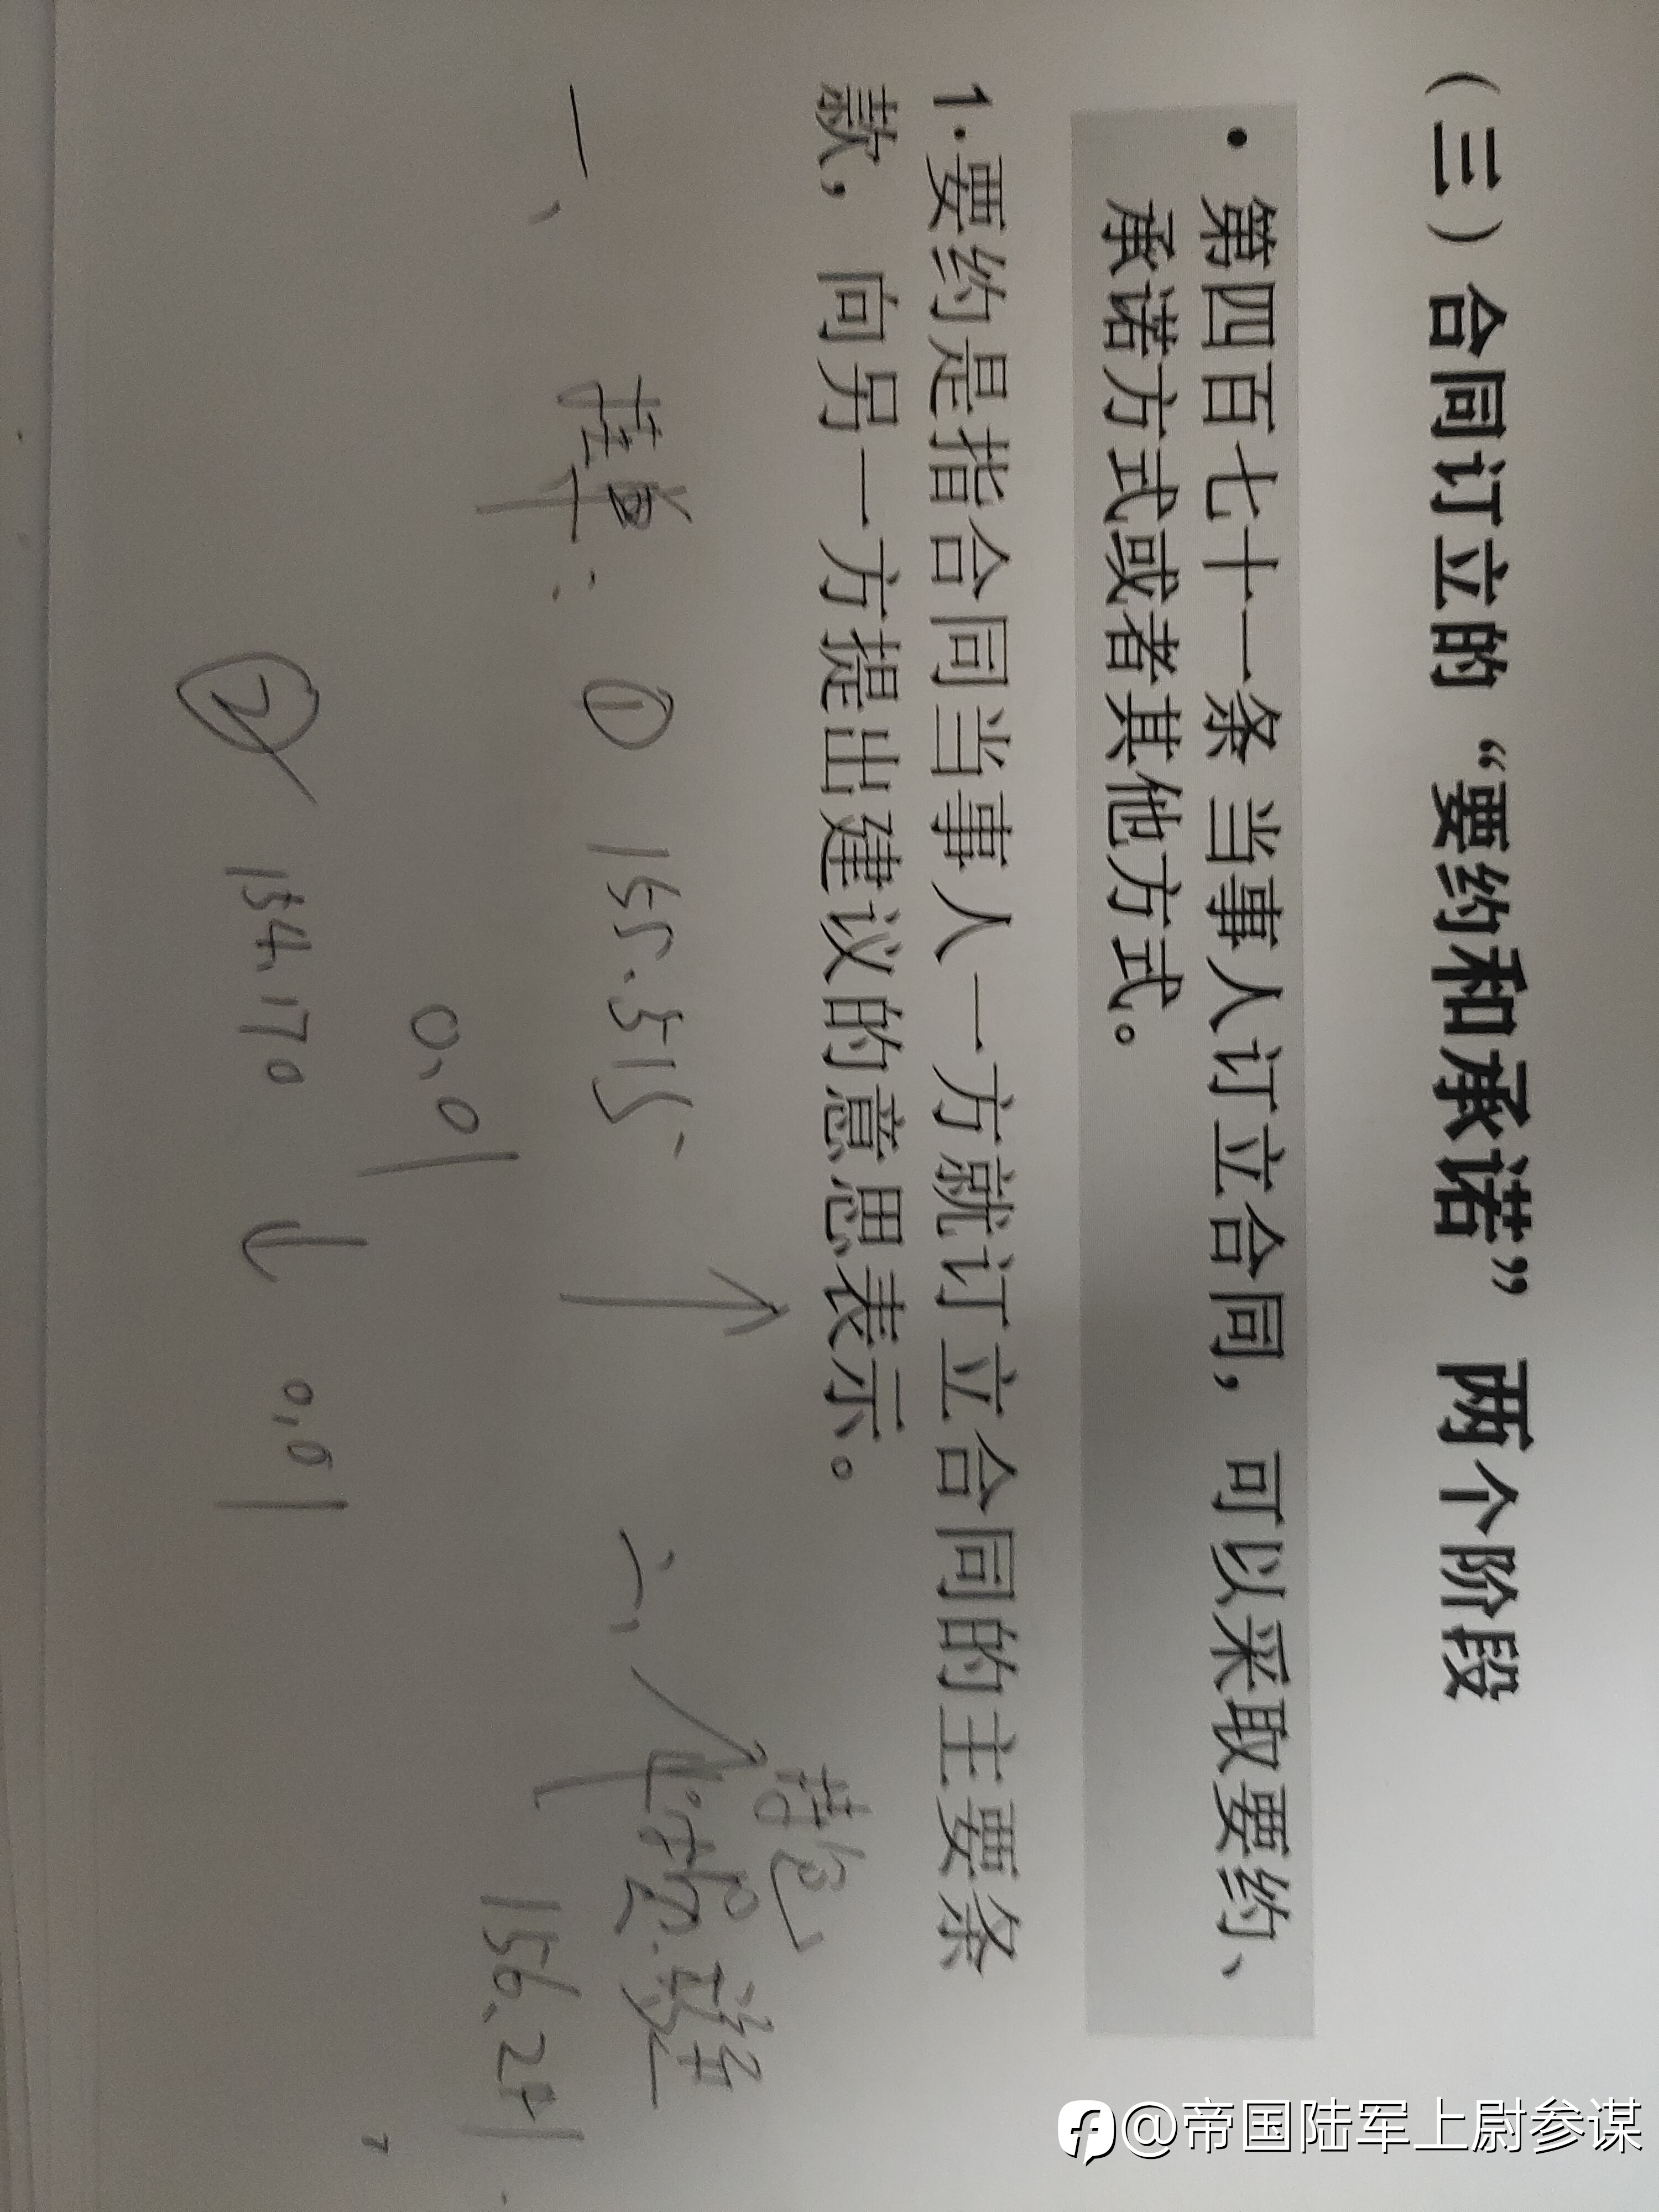 （三）合同订立的“要约和承诺”两个阶段
• 第四百七十一条 当事人订立合同，可以采取要约、
承诺方式或者其他方式。
1.要约是指合同当事人一方就订立合同的主要条
款，向另一方提出建议的意思表示。
一、挂单： ① 155.515 ↑
0.01
② 154.170 ↓ 0.01
二、
156.241
@帝国陆军上尉参谋